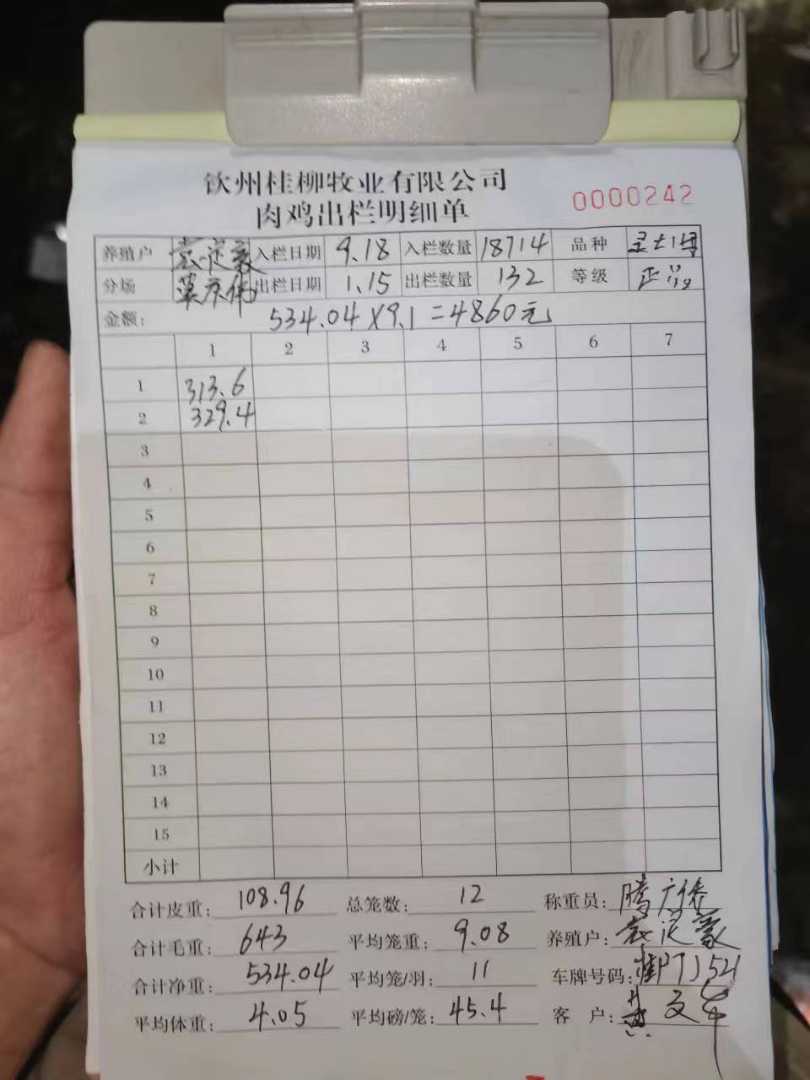 钦州桂柳牧业有限公司
肉鸡出栏明细单
0000242
养殖户 入栏日期 9.18 入栏数量 18714 品种
分场 出栏日期 1.15 出栏数量 132 等级 正品
金额: 534.04×9.1=4860元
1 2 3 4 5 6 7
1 313.6
2 329.4
3
4
5
6
7
8
9
10
11
12
13
14
15
小计
合计皮重: 108.96 总笼数: 12 称重员:
合计毛重: 643 平均笼重: 9.08 养殖户:
合计净重: 534.04 平均笼/羽: 11 车牌号码:
平均体重: 4.05 平均磅/笼: 45.4 客 户: